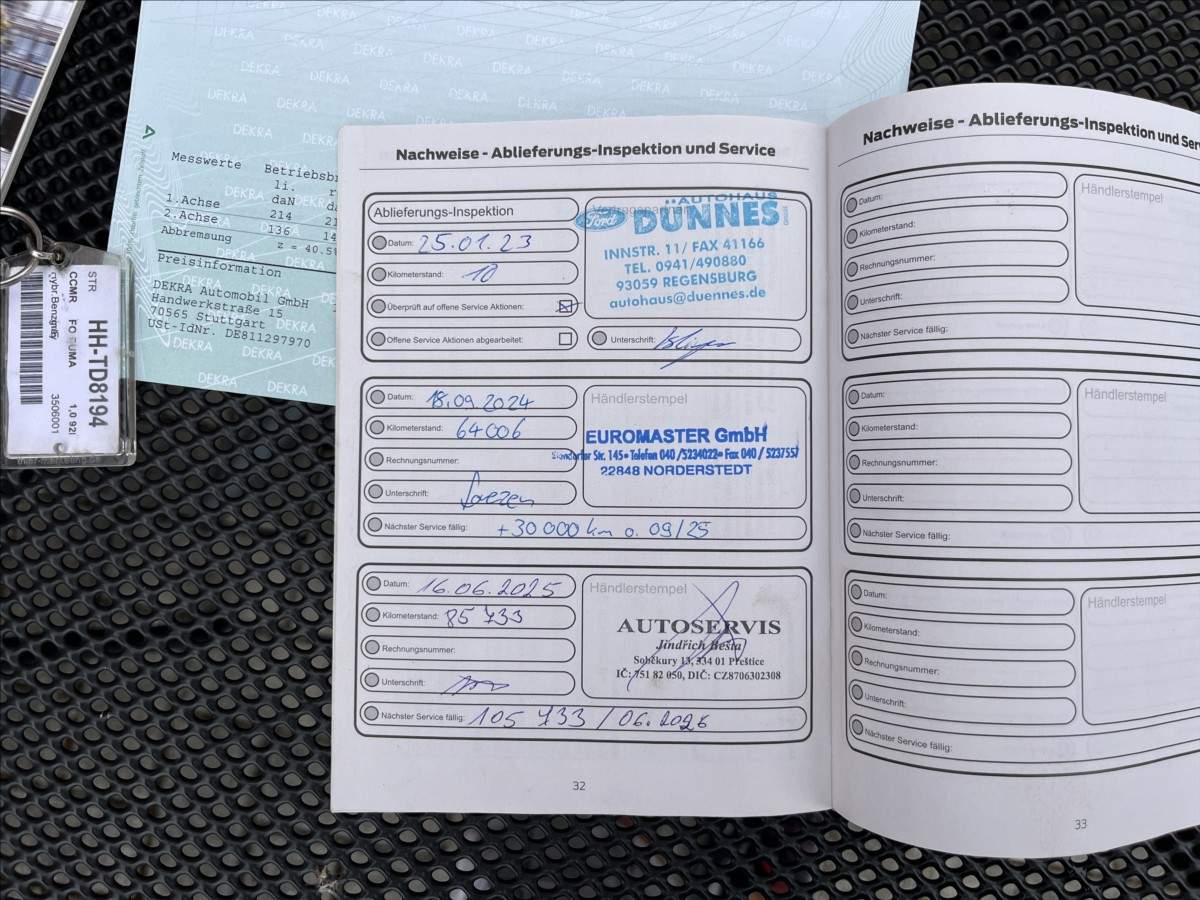 DEKRA
Messwerte Betriebsbr
li. r
daN da
1.Achse 214 21
2.Achse 136 14
Abbremsung z = 40.5%
Preisinformation
DEKRA Automobil GmbH
Handwerkstraße 15
70565 Stuttgart
USt-IdNr. DE811297970
STR
HH-TD8194
CCMR FO PUMA 1,0 92l
3506001
Nachweise - Ablieferungs-Inspektion und Service
Ablieferungs-Inspektion
Datum: 25.01.23
Kilometerstand: 10
Überprüft auf offene Service Aktionen:
Offene Service Aktionen abgearbeitet:
Ford
AUTOHAUS
DÜNNES
INNSTR. 11/ FAX 41166
TEL. 0941/490880
93059 REGENSBURG
autohaus@duennes.de
Unterschrift:
Datum: 18.09.2024
Kilometerstand: 64006
Rechnungsnummer:
Unterschrift:
Nächster Service fällig: +30 000 km o. 09/25
Händlerstempel
EUROMASTER GmbH
Str. 145 • Telefon 040 /5234022 • Fax 040 / 5237557
22848 NORDERSTEDT
Datum: 16.06.2025
Kilometerstand: 85 733
Rechnungsnummer:
Unterschrift:
Nächster Service fällig: 105 733 / 06.2026
Händlerstempel
AUTOSERVIS
Jindřich Bešta
Soběkury 13, 334 01 Přeštice
IČ: 751 82 050, DIČ: CZ8706302308
32
Nachweise - Ablieferungs-Inspektion und Ser
Datum:
Kilometerstand:
Rechnungsnummer:
Unterschrift:
Nächster Service fällig:
Händlerstempel
Datum:
Kilometerstand:
Rechnungsnummer:
Unterschrift:
Nächster Service fällig:
Händlerstempel
Datum:
Kilometerstand:
Rechnungsnummer:
Unterschrift:
Nächster Service fällig:
Händlerstempel
33